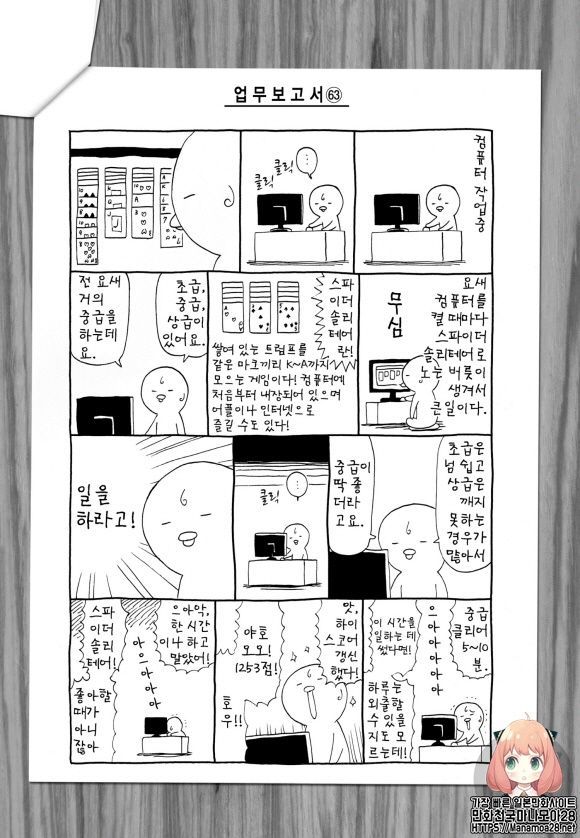 업무보고서㊿
컴퓨터 작업중
…
클릭
클릭
요새
컴퓨터를
켤 때마다
스파이더
솔리테어로
노는 버릇이
생겨서
큰일이다.
무심
스파
이더
솔리
테어
란!
쌓여 있는 트럼프를
같은 마크끼리 K~A까지
모으는 게임이다! 컴퓨터에
처음부터 내장되어 있으며
어플이나 인터넷으로
즐길 수도 있다!
초급,
중급,
상급이
있어요.
전 요새
거의
중급을
하는데
요.
초급은
넘 쉽고
상급은
깨지
못하는
경우가
많아서
중급이
딱 좋
더라
고요.
…
클릭
일을
하라고!
중급
클리어
5~10
분.
이 시간을
일하는 데
썼다면!
으아아아아아
하루는
외출할
수 있을
지도 모
르는데!
앗,
하이
스코어
갱신
했다!
야호
오오!
1253점!
호
우!!
으아악,
한 시간
이나 하고
말았어!
아으아아아
스파
이더
솔리
테어!
좋아할
때가
아니
잖아
가장 빠른 일본만화사이트
만화천국마나모아28
HTTPS://Manamoa28.net